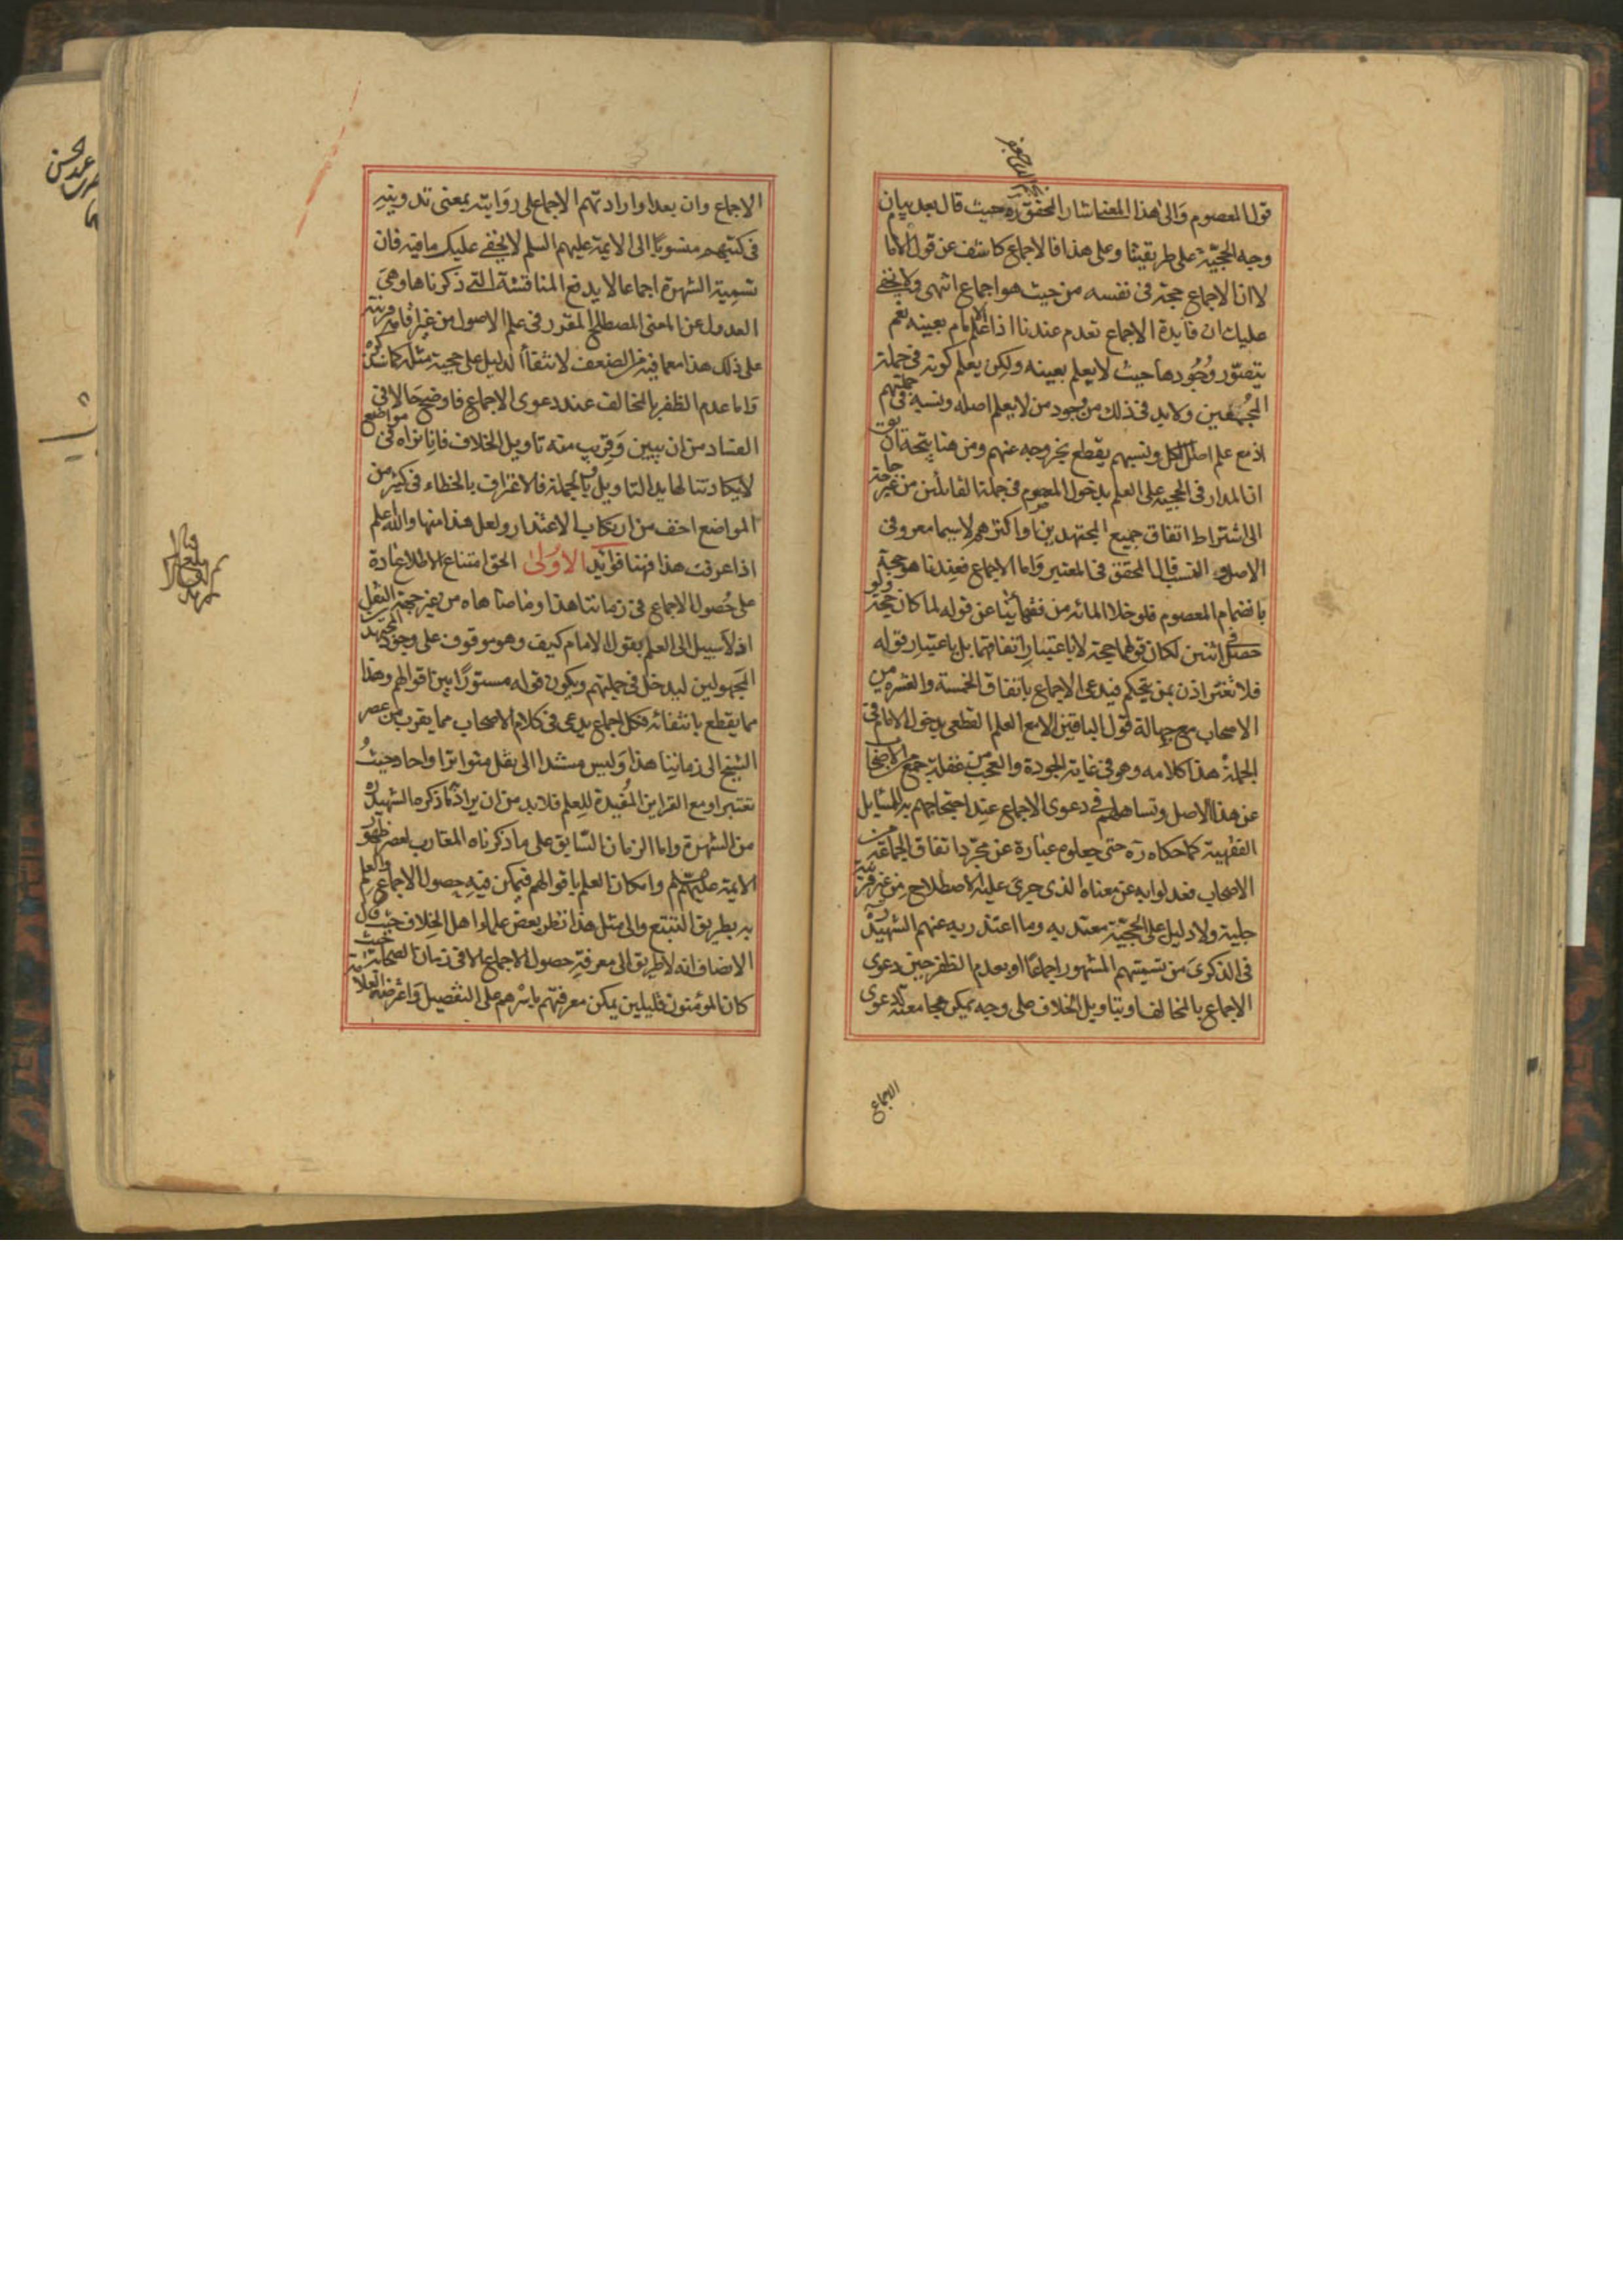 قول المعصوم والى هذا المعنى اشار المحقق ره حيث قال بعد بيان
وجه الحجية على طريقتنا وعلى هذا فالاجماع كاشف عن قول الاما
لا ان الاجماع حجة فى نفسه من حيث هو اجماع انتهى ولا يخفى
عليك ان فايدة الاجماع تعدم عندنا اذا علم الامام بعينه نعم
يتصور وجودها حيث لا يعلم بعينه ولكن يعلم كونه فى جملة
المجمعين ولا بد فى ذلك من وجود من لا يعلم اصله ونسبه فى جملتهم
اذ مع علم اصل الكل ونسبهم يقطع بخروجه عنهم ومن هنا يتجه ان يق
ان المدار فى الحجية على العلم بدخول المعصوم فى جملة القائلين من غير حاجة
الى اشتراط اتفاق جميع المجتهدين او اكثرهم لا سيما معروفى
الاصل و النسب قال المحقق فى المعتبر واما الاجماع فعندنا هو حجة
بانضمام المعصوم فلو خلا المائة من فقهائنا عن قوله لما كان حجة ولو
حصل فى اثنين لكان قولهما حجة لا باعتبار اتفاقهما بل باعتبار قوله
فلا تغتر اذن بمن يتحكم فيدعى الاجماع باتفاق الخمسة والعشرة من
الاصحاب مع جهالة قول الباقين الا مع العلم القطعى بدخول الامام فى
الجملة هذا كلامه وهو فى غاية الجودة والعجب من غفلة جمع الاصحاب
عن هذا الاصل وتساهلهم فى دعوى الاجماع عند احتجاجهم به للمسايل
الفقهية كما حكاه ره حتى جعلوه عبارة عن مجرد اتفاق الجماعة من
الاصحاب فعدلوا به عن معناه الذى جرى عليه الاصطلاح من غير قرينة
جلية ولا دليل على الحجية معتد به وما اعتذر به عنهم الشهيد ره
فى الذكرى من تسميتهم المشهور اجماعا او بعدم الظفر حين دعوى
الاجماع بالمخالف او بتاويل الخلاف على وجه يمكن مجامعته لدعوى
الاجماع
الاجماع وان بعد او ارادتهم الاجماع على روايته بمعنى تدوينه
فى كتبهم منسوبا الى الايمة عليهم السلم لا يخفى عليك ما فيه فان
تسمية الشهرة اجماعا لا يدفع المناقشة التى ذكرناها وهى
العدول عن المعنى المصطلح المقرر فى علم الاصول من غير اقامة قرينة
على ذلك هذا مع ما فيه من الضعف لانتفاء الدليل على حجية مثله كما سنذكره
واما عدم الظفر بالمخالف عند دعوى الاجماع فاوضح حالا فى
الفساد من ان يبين وقريب منه تاويل الخلاف فانا نراه فى مواضع
لا يكاد تنالها يد التاويل وبالجملة فالاعتراف بالخطاء فى كثير من
المواضع اخف من ارتكاب الاعتذار ولعل هذا منها والله اعلم
اذا عرفت هذا فههنا فوائد الاولى الحق امتناع الاطلاع عادة
على حصول الاجماع فى زماننا هذا وما ضاهاه من غير جهة النقل
اذ لا سبيل الى العلم بقول الامام كيف وهو موقوف على وجود المجتهدين
المجهولين ليدخل فى جملتهم ويكون قوله مستورا بين اقوالهم وهذا
مما يقطع بانتفائه فكل اجماع يدعى فى كلام الاصحاب مما يقرب من عصر
الشيخ الى زماننا هذا وليس مستندا الى نقل متواترا واحاد حيث
تعتبر او مع القراين المفيدة للعلم فلا بد من ان يراد به ما ذكره الشهيد ره
من الشهرة واما الزمان السابق على ما ذكرناه المقارب لعصر ظهور
الايمة عليهم السلم وامكان العلم باقوالهم فيمكن فيه حصول الاجماع والعلم
به بطريق التتبع والى مثل هذا نظر بعض علماء اهل الخلاف حيث قال
الانصاف انه لا طريق الى معرفة حصول الاجماع الا فى زمان الصحابة حيث
كان المؤمنون قليلين يمكن معرفتهم باسرهم على التفصيل واعترضه العلامة